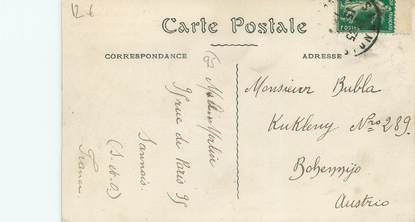 12.6
Carte Postale
CORRESPONDANCE
ADRESSE
POSTES
95
rue de Paris 95
Sannois
(S.-et-O.)
France
Monsieur Bubla
Kukleny Nro 289.
Bohemijo
Austrio